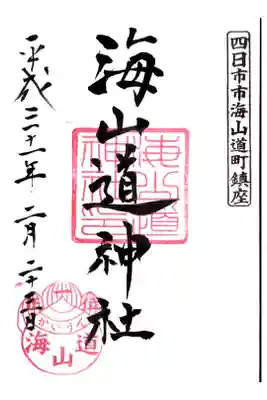 四日市市海山道町鎮座
海山道神社
平成三十一年 二月 二十三日
かいうん
海山道